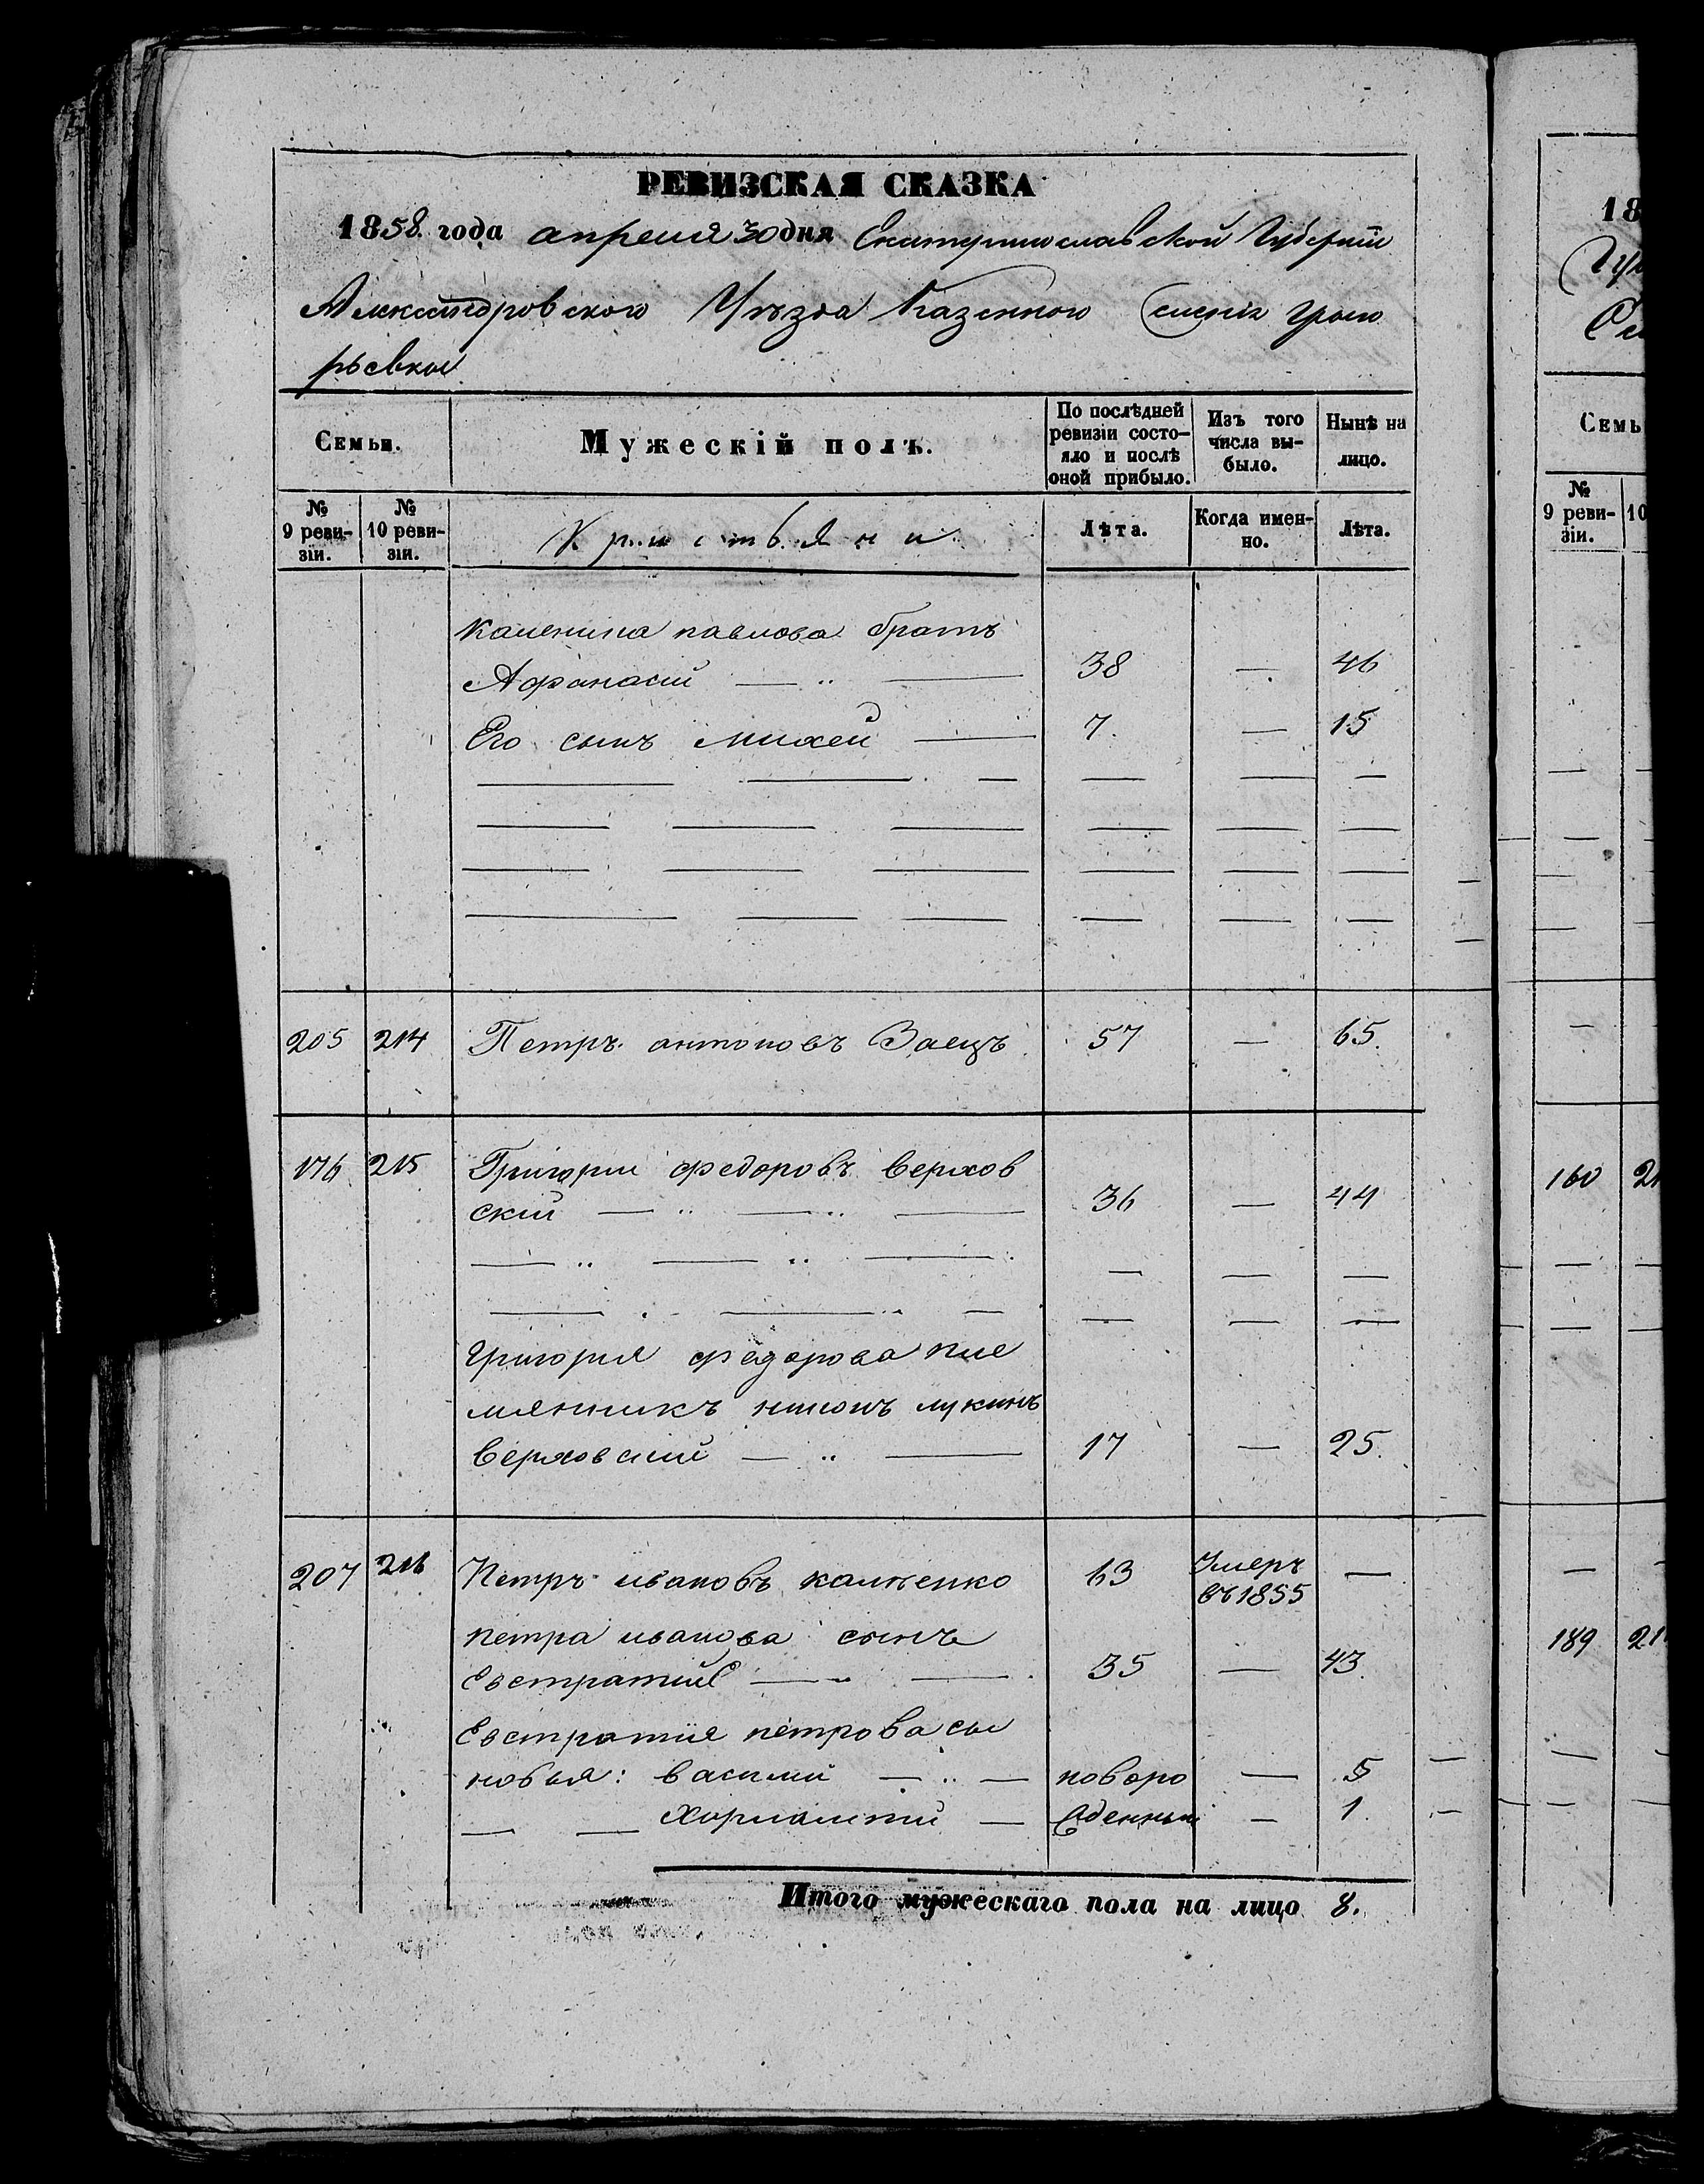 РЕВИЗСКАЯ СКАЗКА
1858 года апреля 30 дня Екатеринославской Губерніи
Александровского Уѣзда Казенного Селенія Григо
рьевки
Семьи.
Мужескій полъ.
По послѣдней ревизіи состо-яло и послѣ оной прибыло.
Изъ того числа вы-было.
Нынѣ на лицо.
№ 9 реви-зіи.
№ 10 реви-зіи.
Крестьяне
Лѣта.
Когда имен-но.
Лѣта.
Каленика павлова братъ
Афанасій — " — 38 — 46
Его сынъ михей — 7. — 15
205 214 Петръ антоновъ Заецъ 57 — 65.
176 215 Григорій федоровъ верхов
скій — " — " — 36 — 44
григорія федорова пле
мянникъ нионъ лукинъ
верховскій — " — 17 — 25.
207 216 Петръ ивановъ калненко 63 Умеръ въ 1855 —
петра иванова сынъ
Евстратій — " — 35 — 43.
Евстратія петрова сы
новья: василій — " — новоро — 5
— — Харлампій — жденный — 1.
Итого мужескаго пола на лицо 8.
18
Семь
№ 9 реви-зіи.
10
160 21
189 21